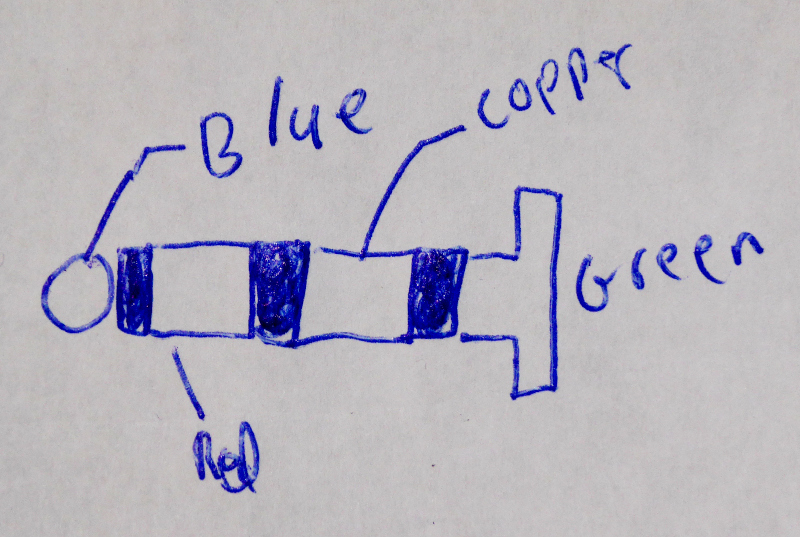 Blue
copper
Green
Red